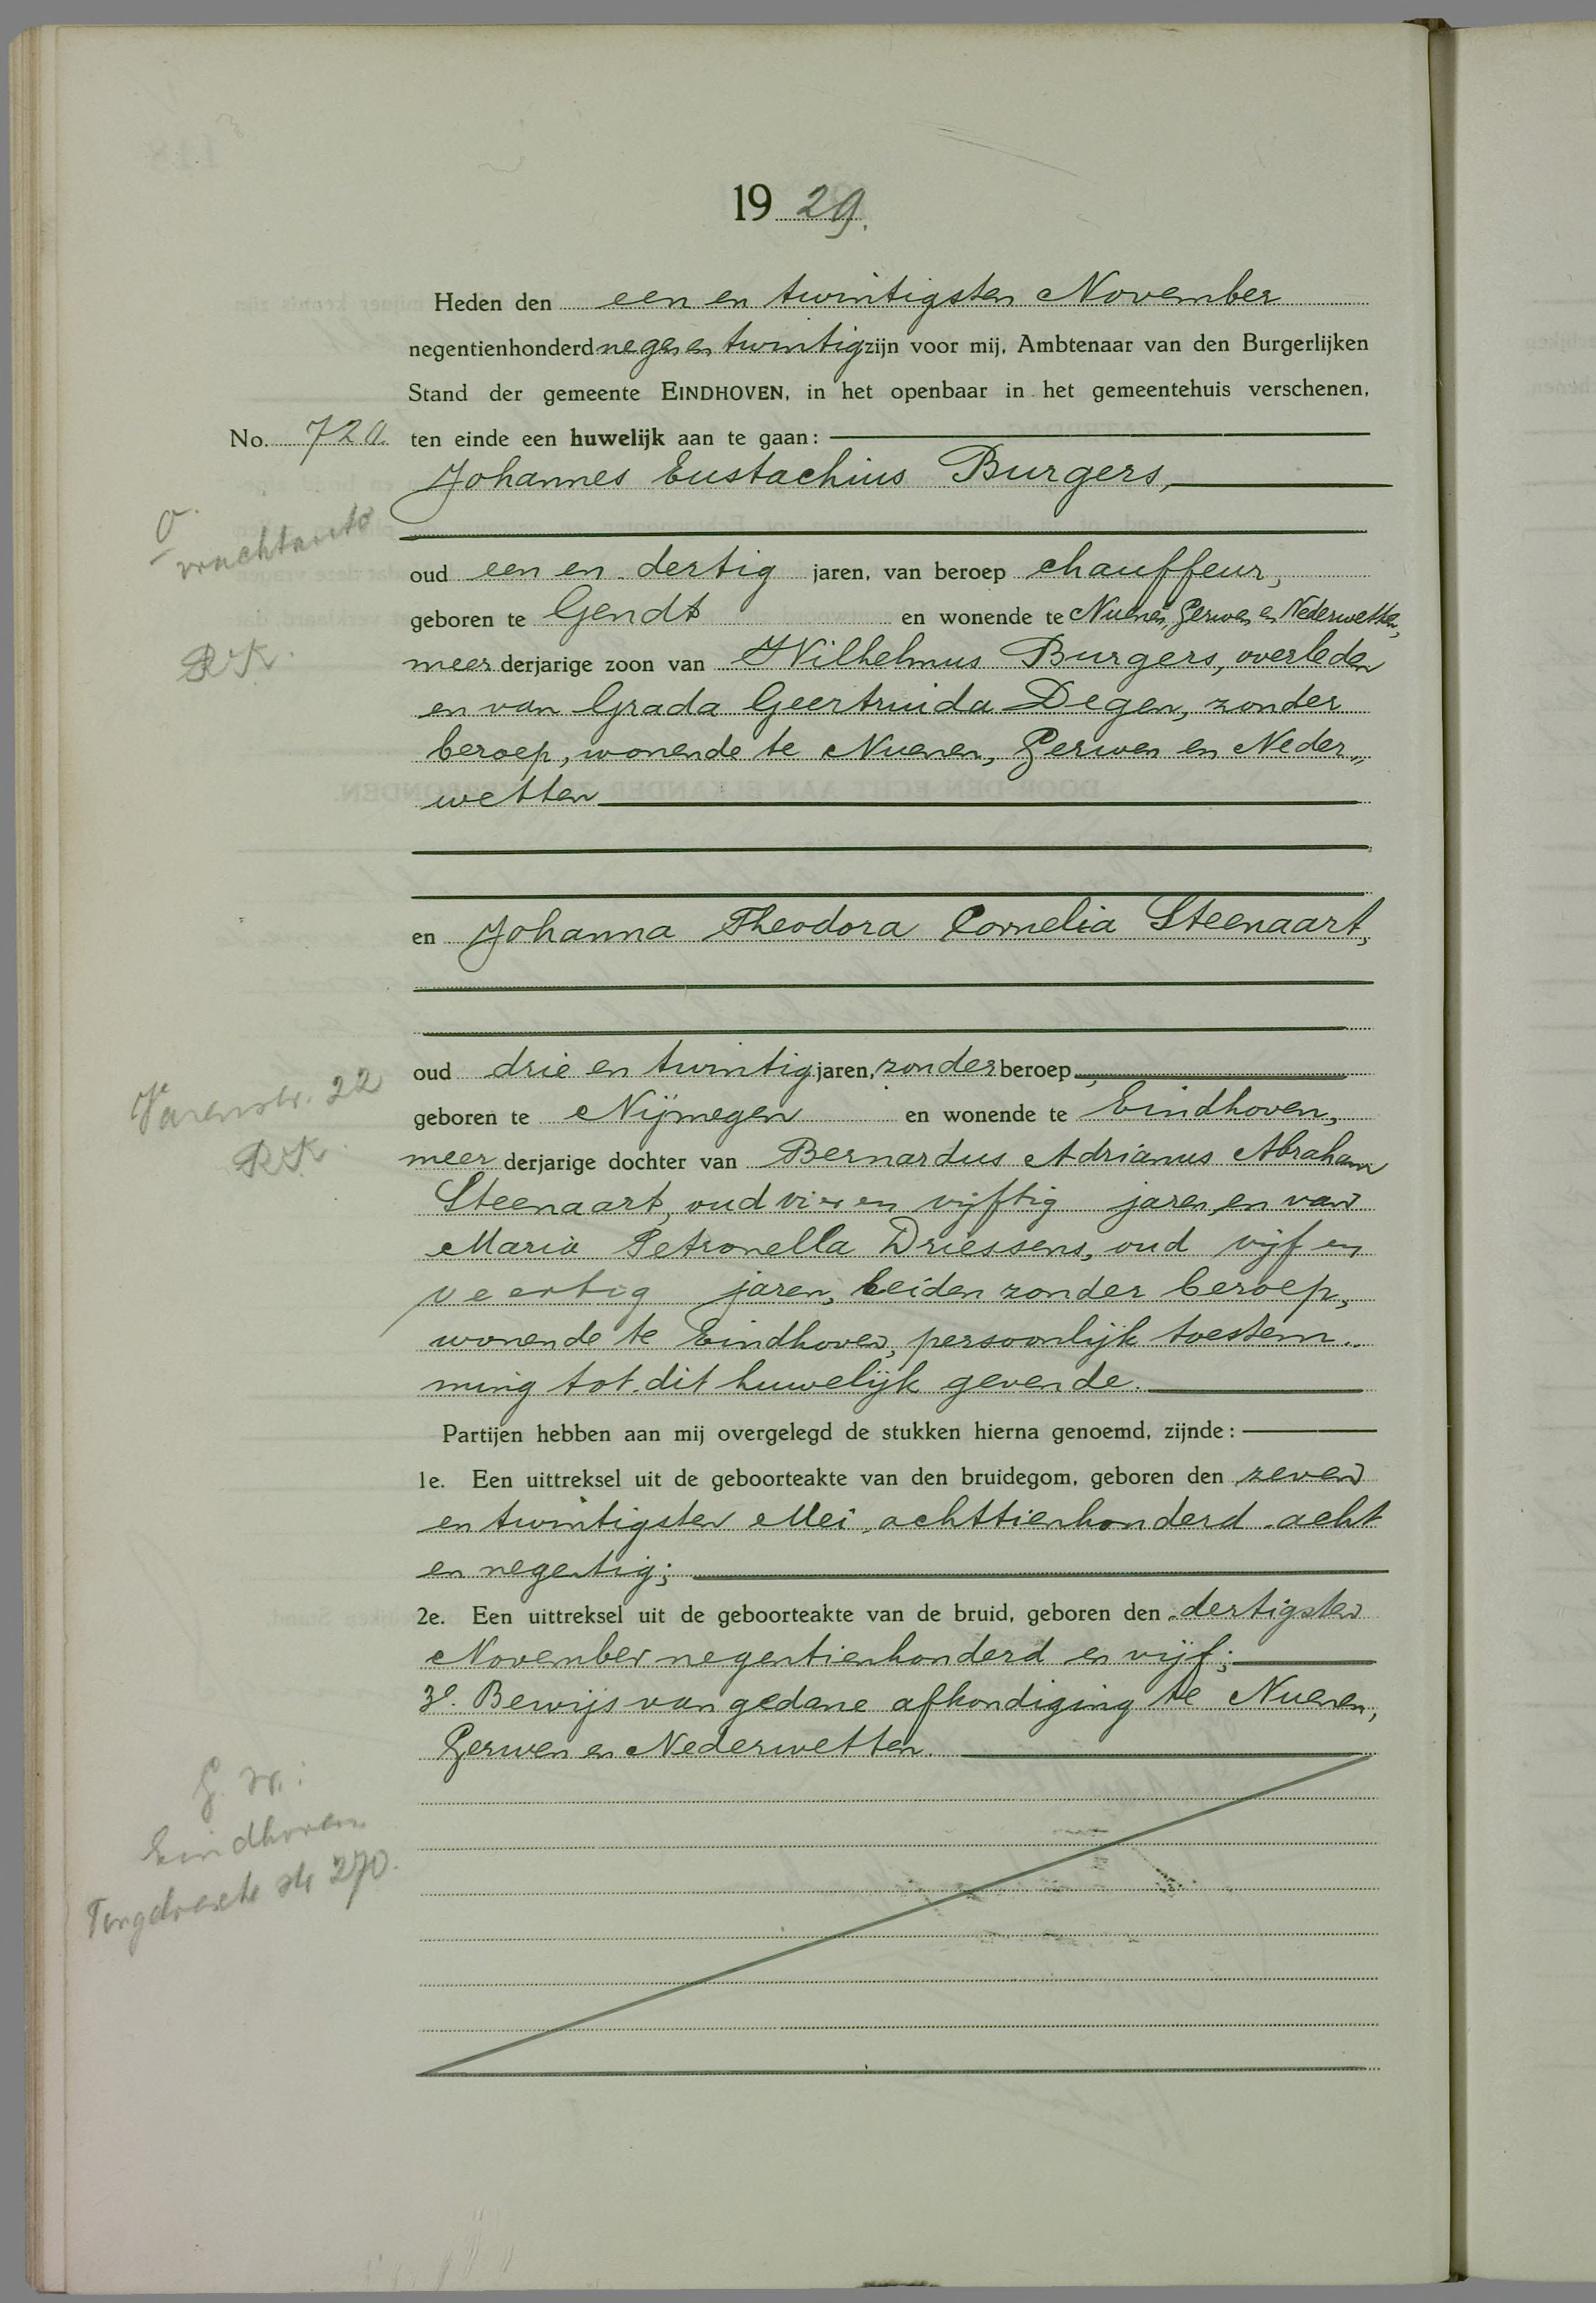 19 29.
Heden den een en twintigsten November
negentienhonderd negen en twintig zijn voor mij, Ambtenaar van den Burgerlijken
Stand der gemeente EINDHOVEN, in het openbaar in het gemeentehuis verschenen,
No. 720. ten einde een huwelijk aan te gaan:
Johannes Eustachius Burgers,
vrachtauto
oud een en dertig jaren, van beroep chauffeur,
geboren te Gendt en wonende te Nuenen, Gerwen en Nederwetten,
RK.
meer derjarige zoon van Wilhelmus Burgers, overleden
en van Grada Geertruida Degen, zonder
beroep, wonende te Nuenen, Gerwen en Neder„
wetten
en Johanna Theodora Cornelia Steenaart,
Varenstr. 22
oud drie en twintig jaren, zonder beroep,
geboren te Nijmegen en wonende te Eindhoven,
RK.
meer derjarige dochter van Bernardus Adrianus Abraham
Steenaart, oud vier en vijftig jaren, en van
Maria Petronella Driessens, oud vijf en
veertig jaren, beiden zonder beroep,
wonende te Eindhoven, persoonlijk toestem„
ming tot dit huwelijk gevende.
Partijen hebben aan mij overgelegd de stukken hierna genoemd, zijnde:
1e. Een uittreksel uit de geboorteakte van den bruidegom, geboren den zeven
en twintigsten Mei achttienhonderd acht
en negentig;
2e. Een uittreksel uit de geboorteakte van de bruid, geboren den dertigsten
November negentienhonderd en vijf;
3e. Bewijs van gedane afkondiging te Nuenen,
Gerwen en Nederwetten.
G. W.:
Eindhoven
Tongelresche str 270.